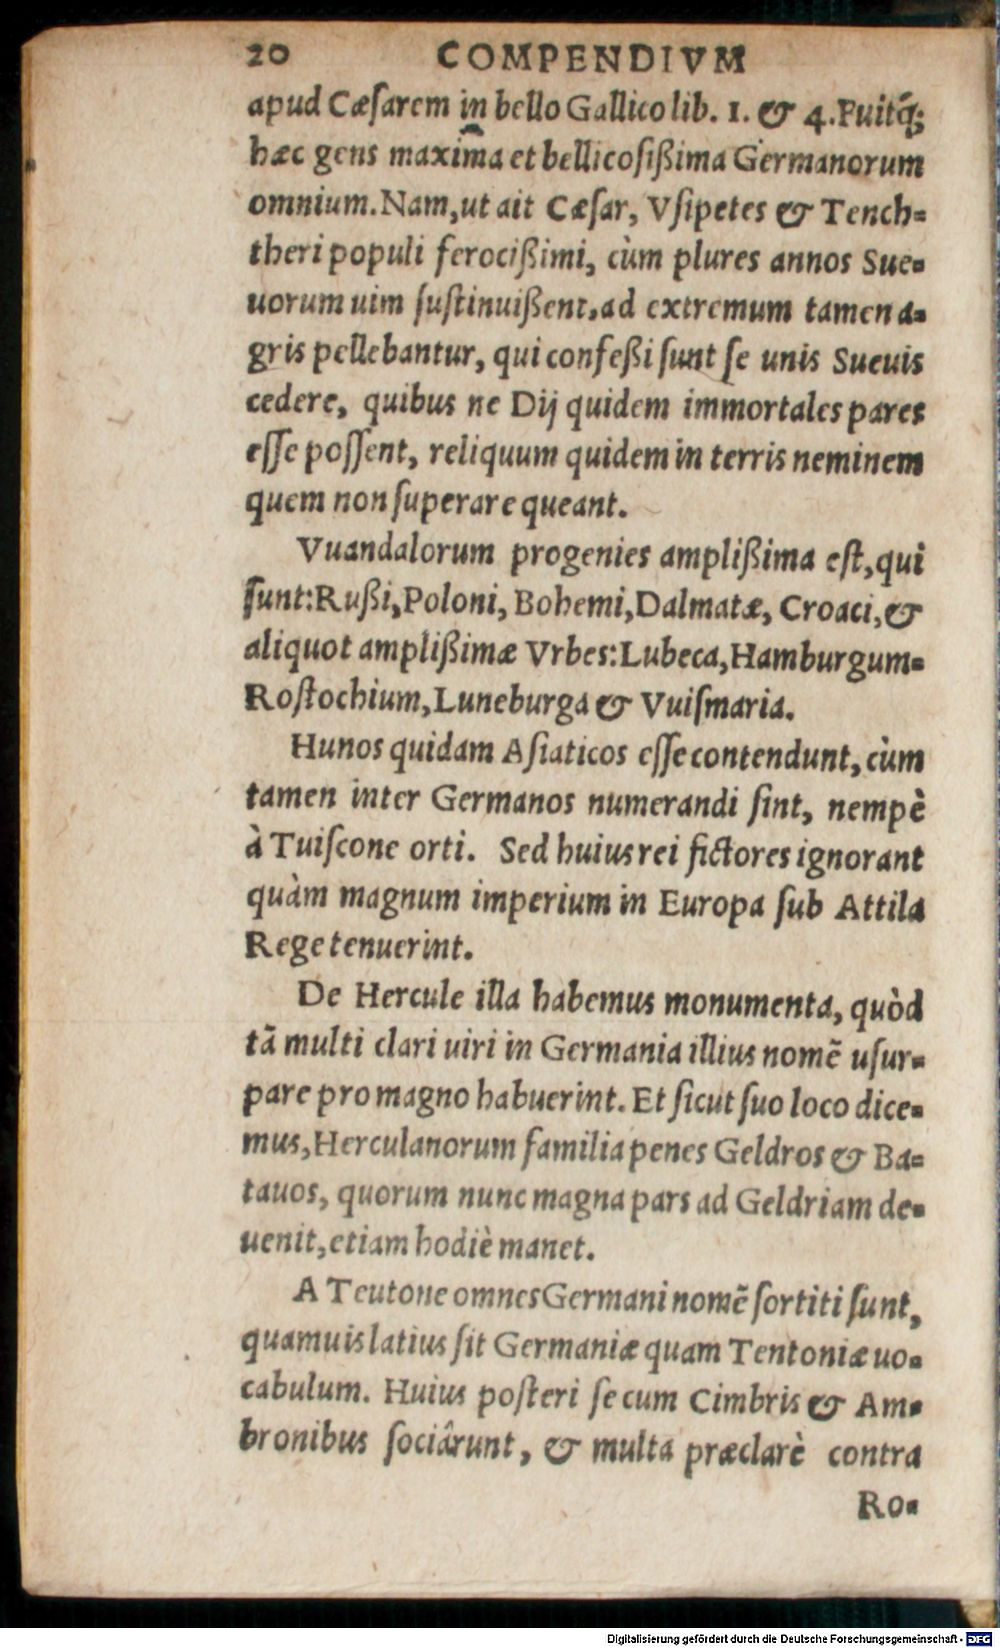 20 COMPENDIVM
apud Cæſarem in bello Gallico lib. 1. & 4. Fuitq́;
hæc gens maxima et bellicoſißima Germanorum
omnium. Nam, ut ait Cæſar, Vſipetes & Tench-
theri populi ferocißimi, cùm plures annos Sue-
uorum uim ſuſtinuißent, ad extremum tamen a-
gris pellebantur, qui confeßi ſunt ſe unis Sueuis
cedere, quibus ne Dij quidem immortales pares
eſſe poſſent, reliquum quidem in terris neminem
quem non ſuperare queant.
Vuandalorum progenies amplißima eſt, qui
ſunt: Rußi, Poloni, Bohemi, Dalmatæ, Croaci, &
aliquot amplißimæ Vrbes: Lubeca, Hamburgum-
Roſtochium, Luneburga & Vuiſmaria.
Hunos quidam Aſiaticos eſſe contendunt, cùm
tamen inter Germanos numerandi ſint, nempè
à Tuiſcone orti. Sed huius rei fictores ignorant
quàm magnum imperium in Europa ſub Attila
Rege tenuerint.
De Hercule illa habemus monumenta, quòd
tā multi clari uiri in Germania illius nomē uſur-
pare pro magno habuerint. Et ſicut ſuo loco dice-
mus, Herculanorum familia penes Geldros & Ba-
tauos, quorum nunc magna pars ad Geldriam de-
uenit, etiam hodiè manet.
A Teutone omnes Germani nomē ſortiti ſunt,
quamuis latius ſit Germaniæ quam Tentoniæ uo-
cabulum. Huius poſteri ſe cum Cimbris & Am-
bronibus ſociârunt, & multa præclarè contra
Ro-
Digitalisierung gefördert durch die Deutsche Forschungsgemeinschaft - DFG